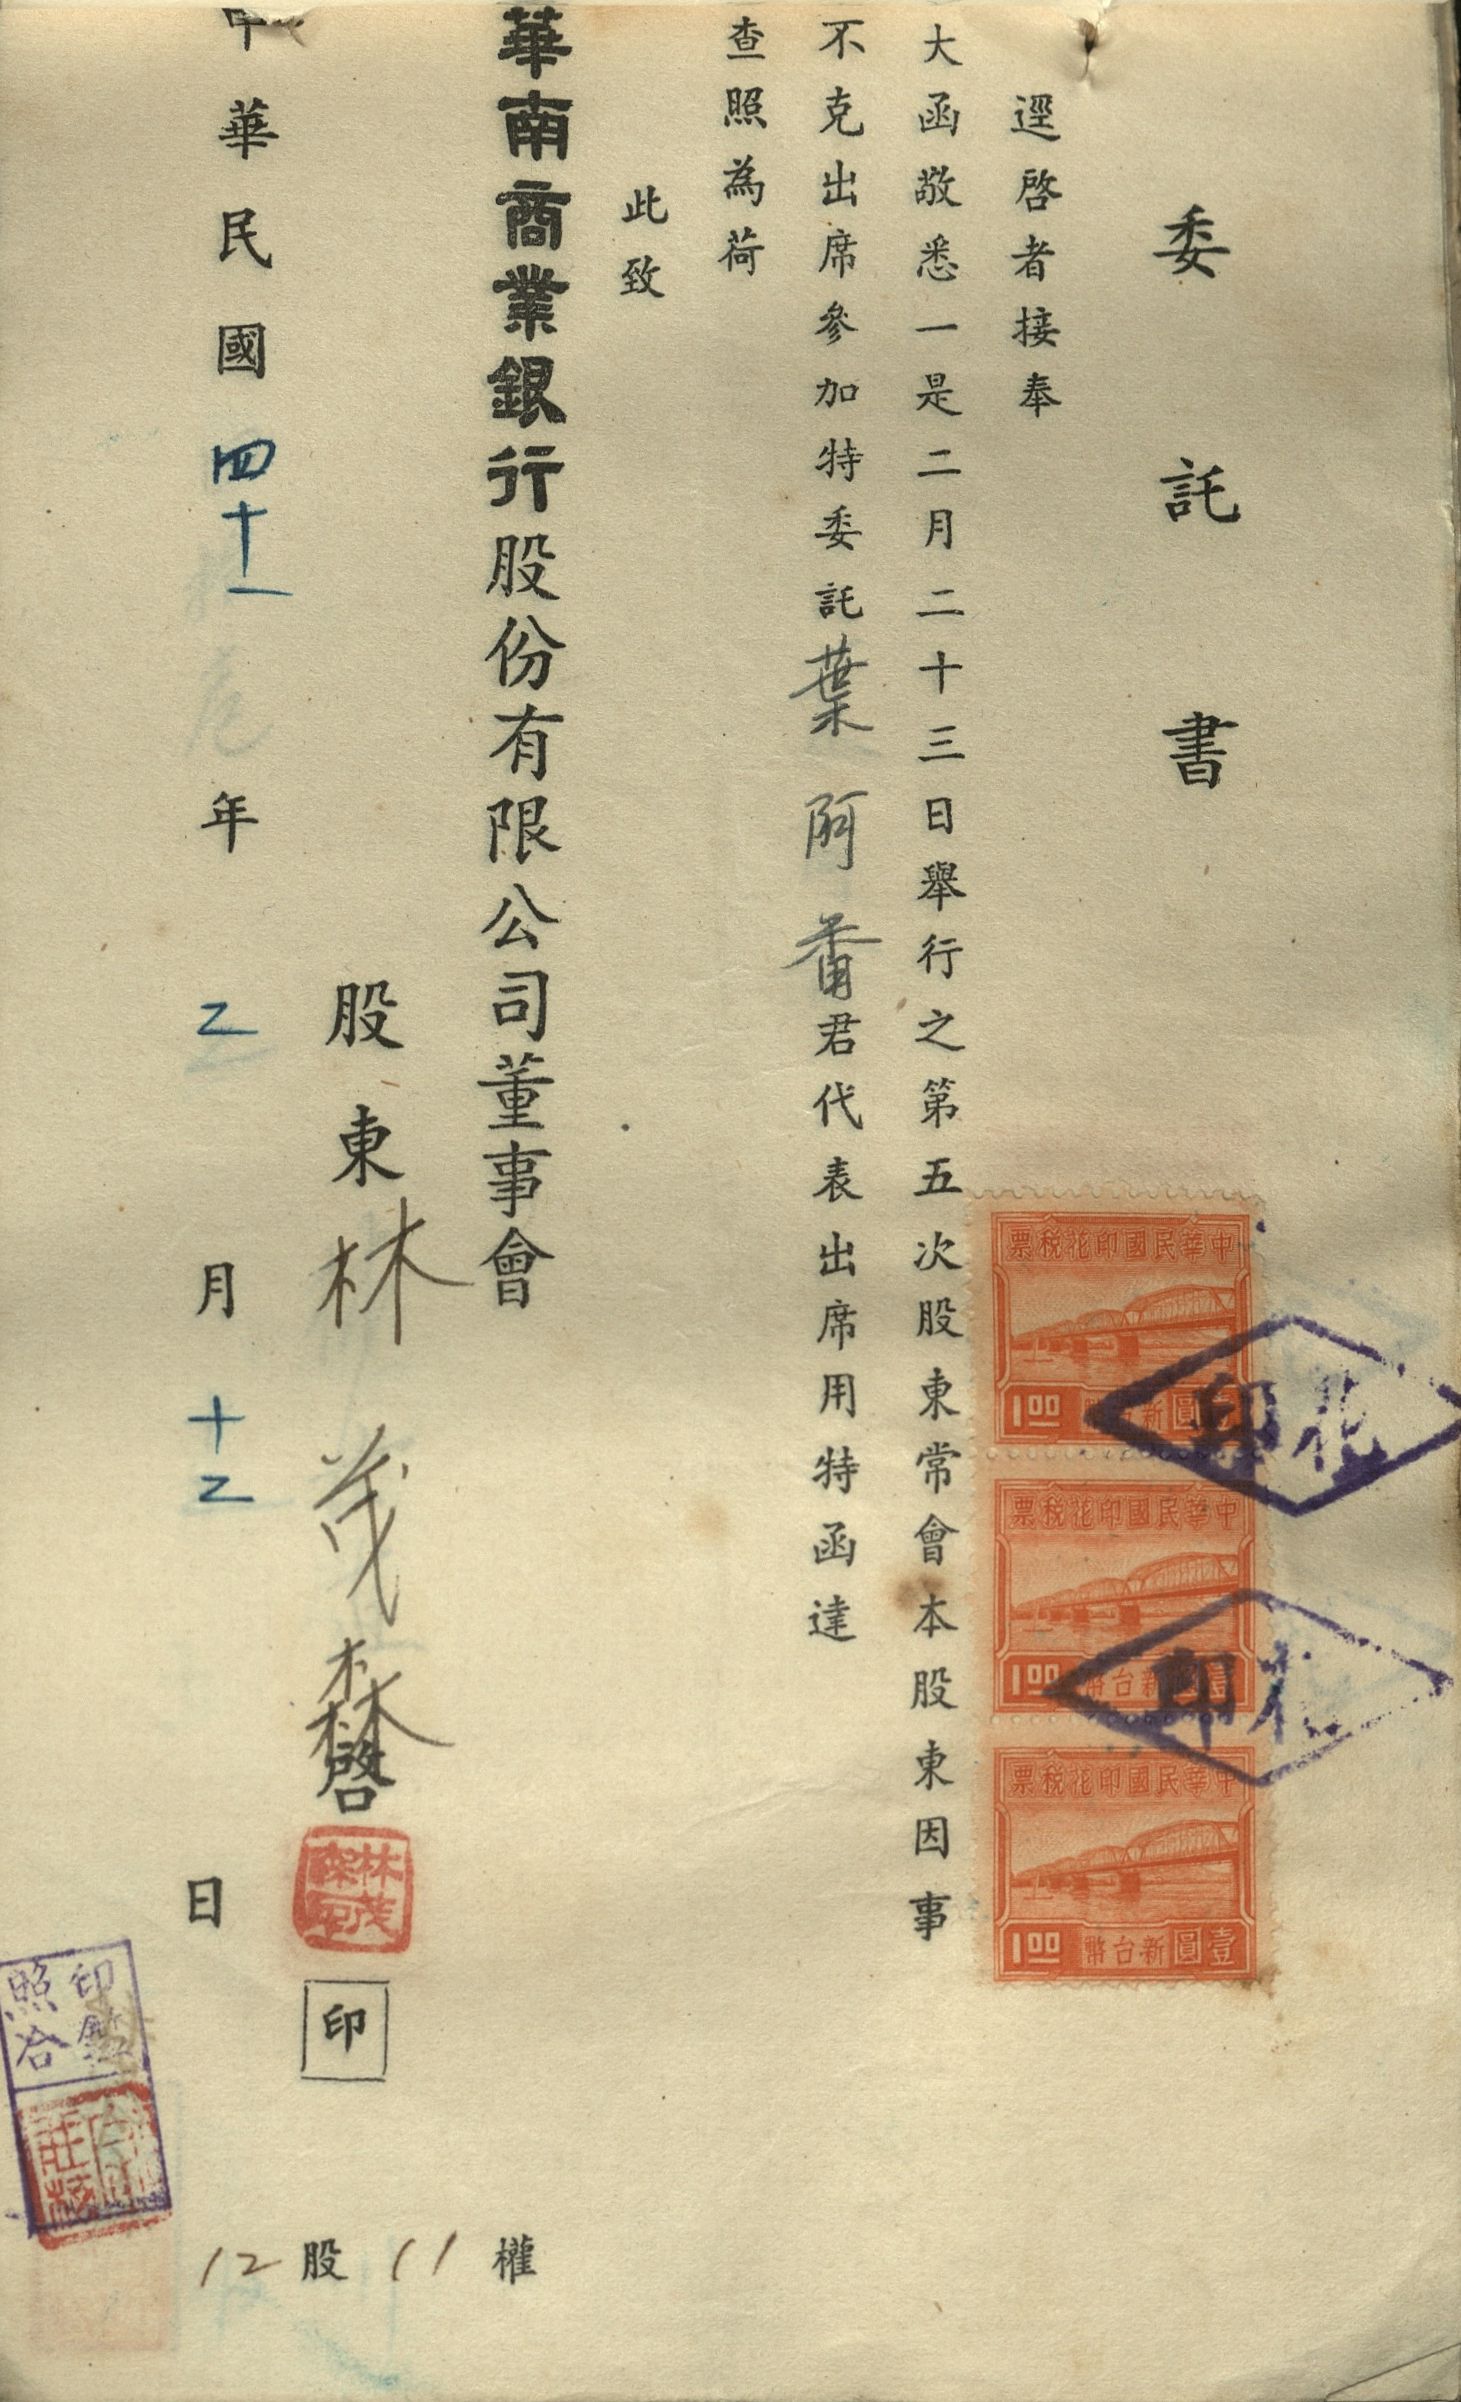 委託書
逕啓者接奉
大函敬悉一是二月二十三日舉行之第五次股東常會本股東因事
不克出席參加特委託葉阿番君代表出席用特函達
查照為荷
此致
華南商業銀行股份有限公司董事會
股東林茂森啓
印
中華民國四十一年二月十二日
12股11權
中華民國印花稅票
1.00 新台幣壹圓
中華民國印花稅票
1.00 新台幣壹圓
中華民國印花稅票
1.00 新台幣壹圓
印花
印花
印鑑
照合